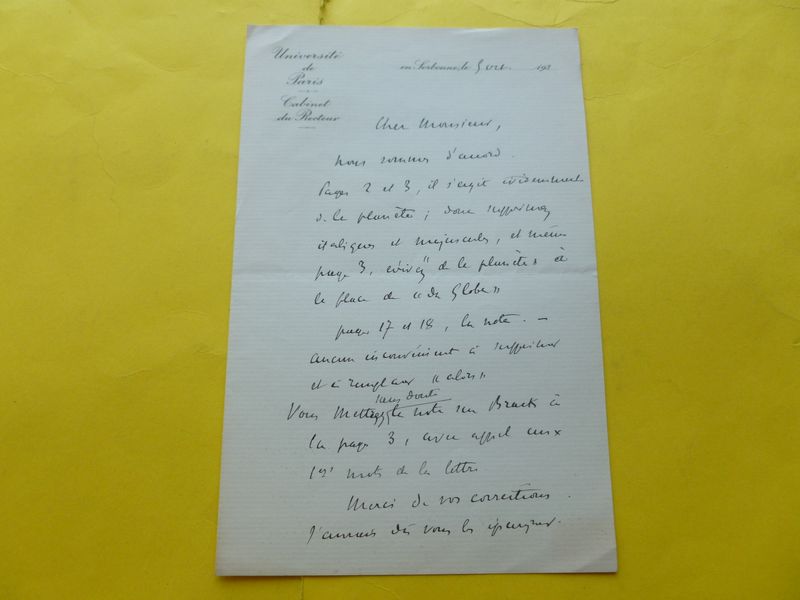 Université
de
Paris
Cabinet
du Recteur
en Sorbonne, le 5 oct. 193
Cher Monsieur,
nous sommes d'accord.
Pages 2 et 3, il s'agit évidemment
de la planète ; donc supprimez
italiques et majuscules, et même
page 3, écrivez "de la planète" à
la place de « du Globe »
pages 17 et 18, la note. —
aucun inconvénient à supprimer
et à remplacer « alors »
sans doute
Vous mettez la note sur Bruck à
la page 3, avec appel aux
1ers mots de la lettre
Merci de vos corrections.
J'aurais dû vous les épargner.